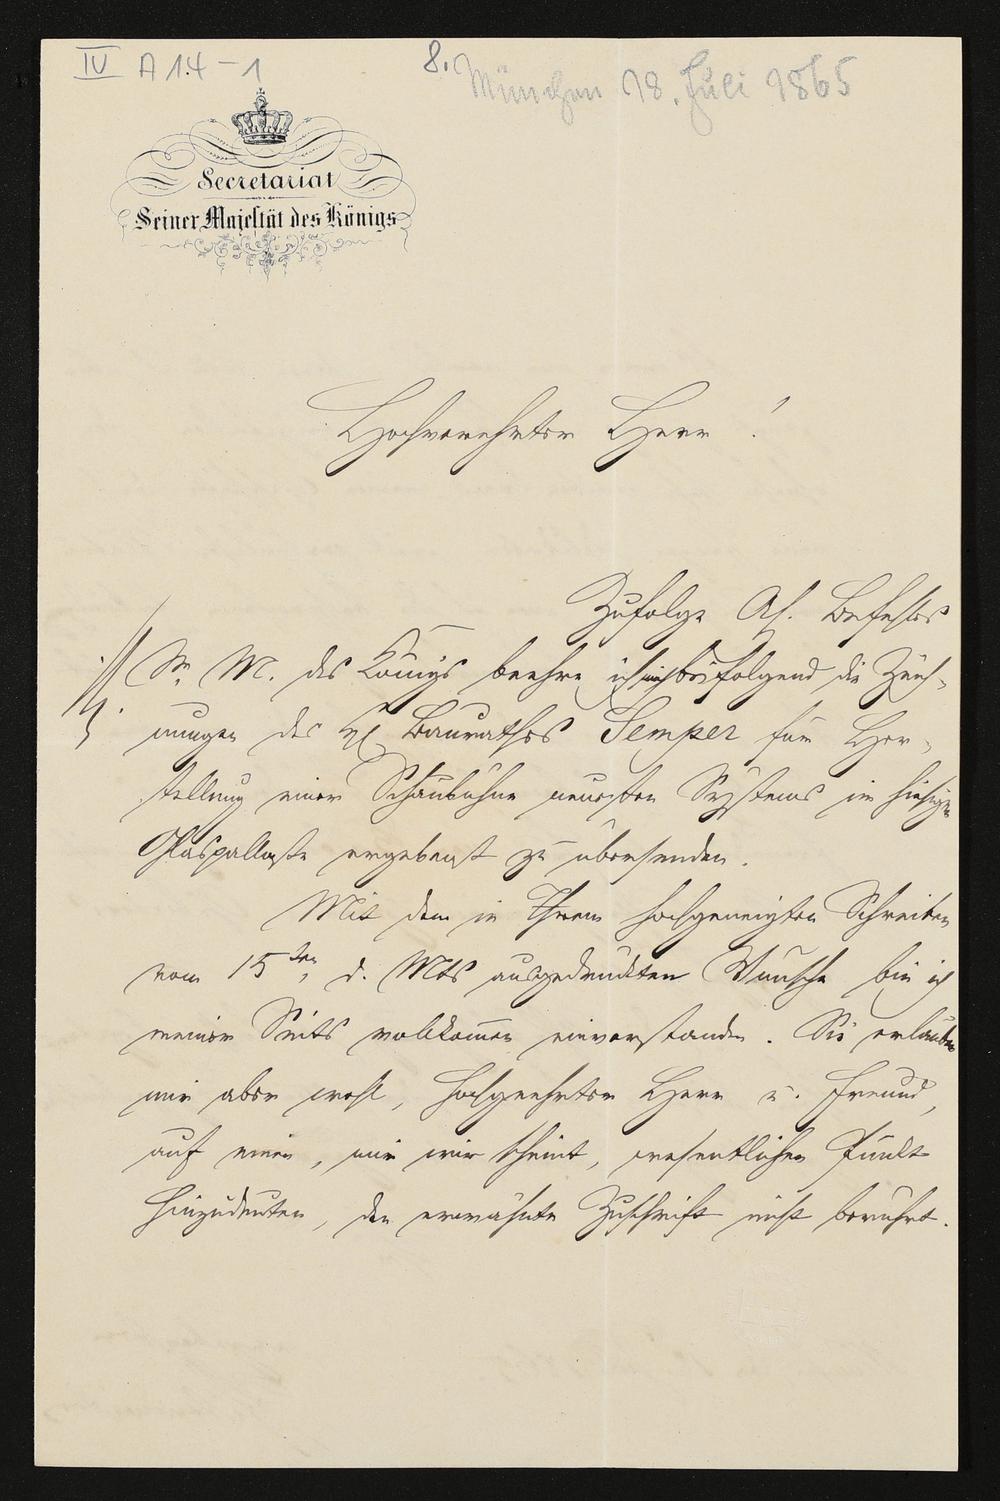 IV A 14-1
8. München 18. Juli 1865
Secretariat
Seiner Majestät des Königs
Hochverehrter Herr!
Zufolge Ah. Befehls
Sr. M. des Königs beehre ich mich beifolgend die Zeich-
nungen des H. Baurathes Semper für Her-
stellung einer Schaubühne neuesten Systems im hiesigen
Glaspallaste ergebenst zu übersenden.
Mit dem in Ihrem hochgeneigten Schreiben
vom 15ten d. Mts ausgedrückten Wunsche bin ich
meiner Seits vollkom̅en einverstanden. Sie erlauben
mir aber wohl, hochgeehrter Herr u. Freund,
auf einen, wie mir scheint, wesentlichen Punkt
hinzudeuten, den erwähnte Zuschrift nicht berührt.